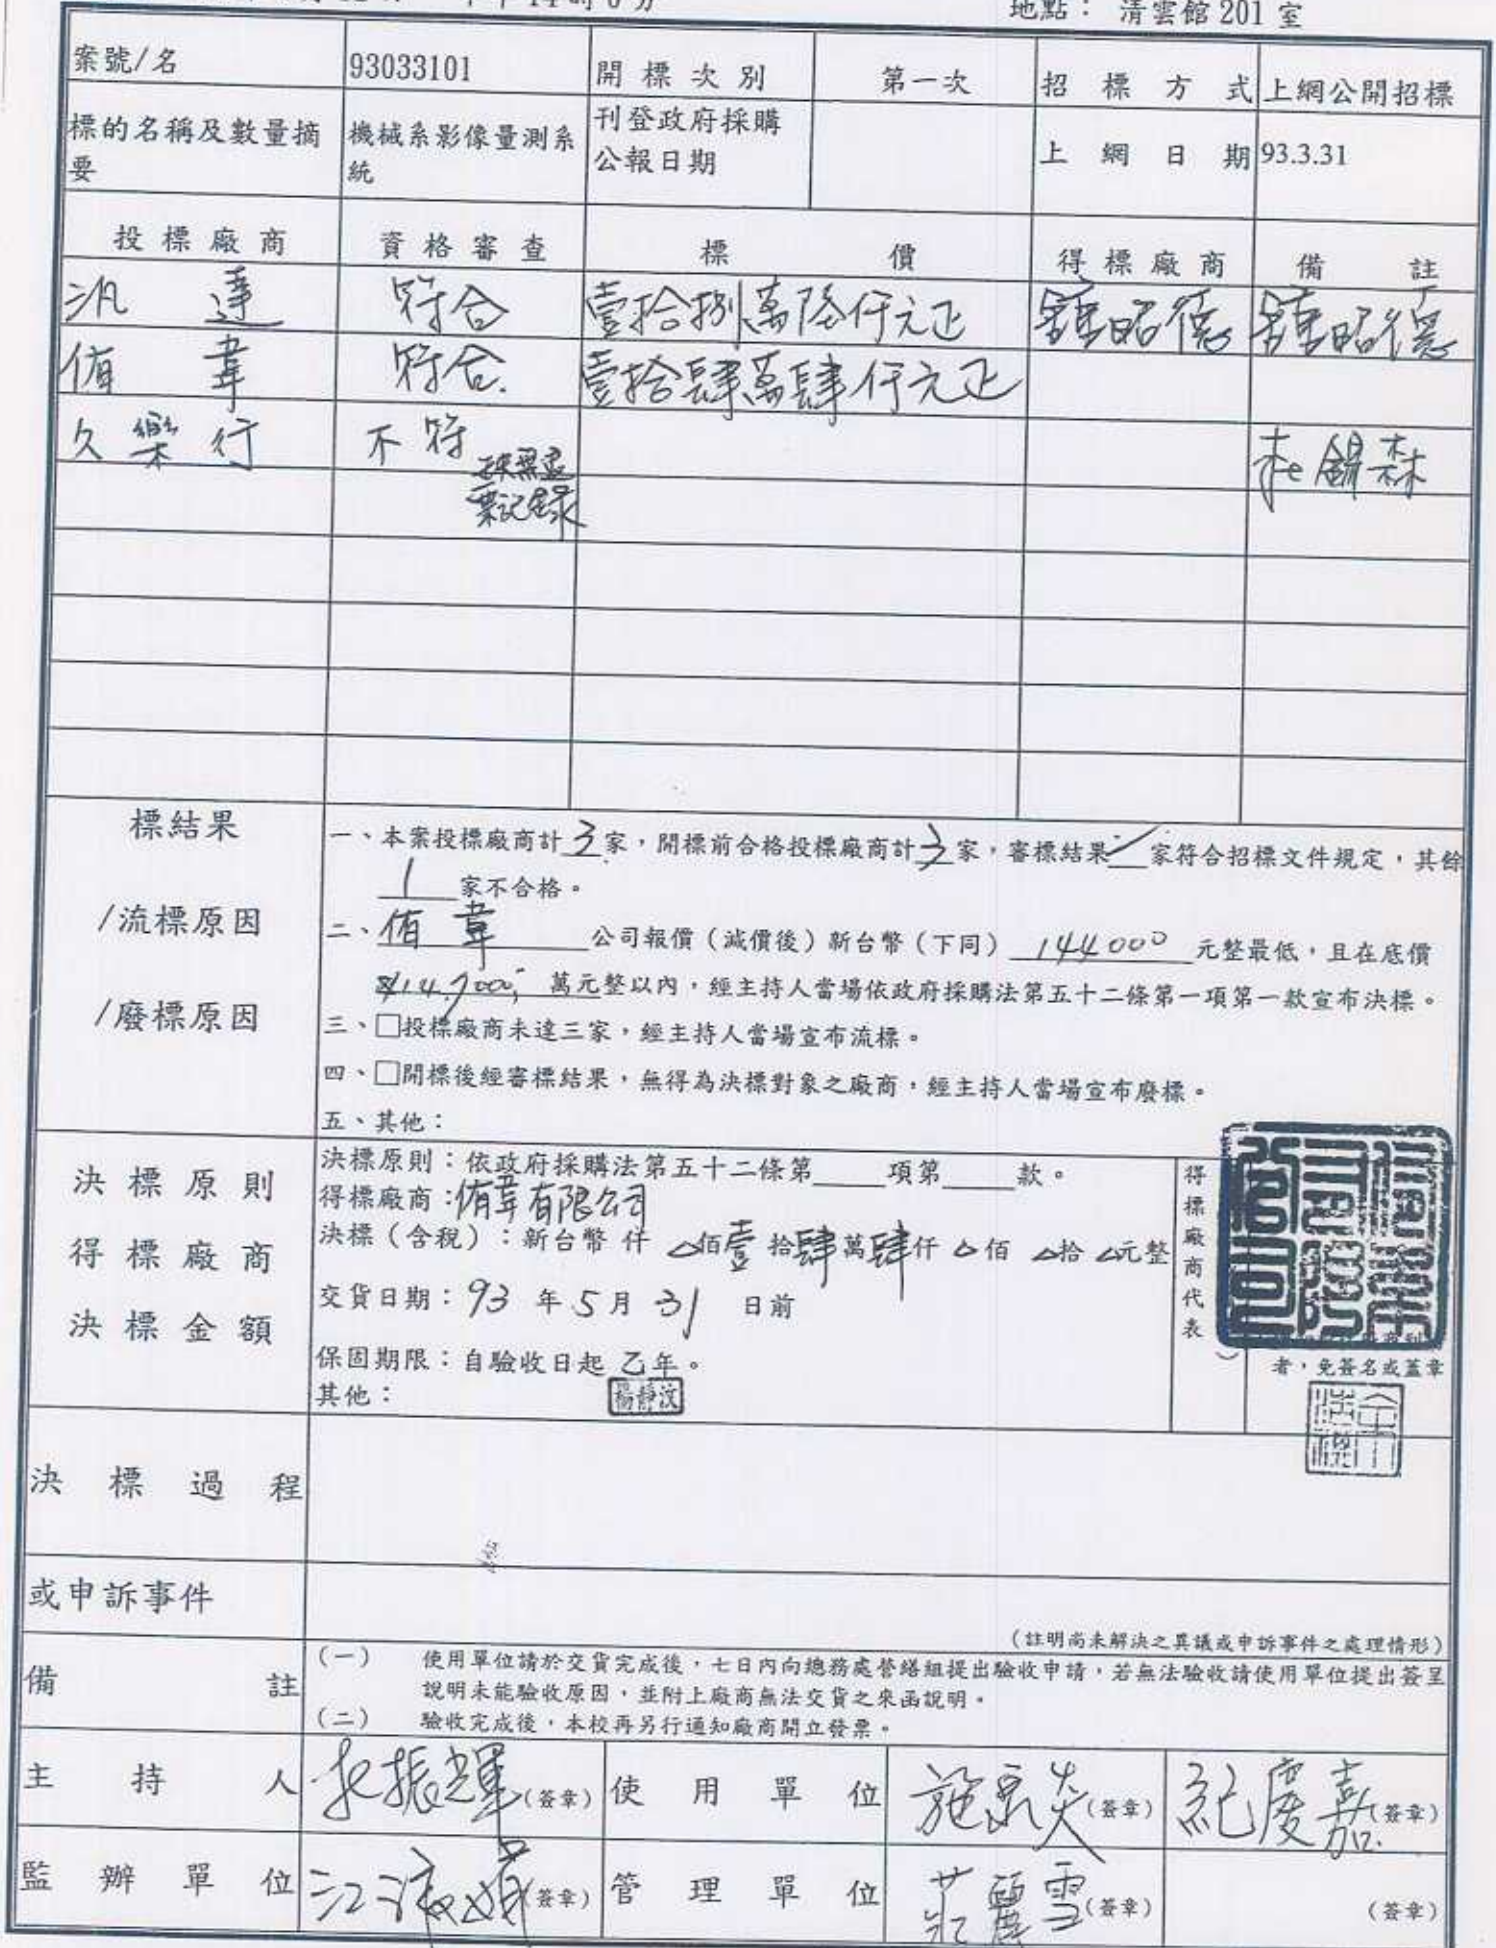 14時0分
地點： 清雲館 201 室
案號/名 93033101 開標次別 第一次 招標方式 上網公開招標
標的名稱及數量摘要 機械系影像量測系統 刊登政府採購公報日期 上網日期 93.3.31
投標廠商 資格審查 標價 得標廠商 備註
汎達 符合 壹拾捌萬陸仟元正
侑韋 符合 壹拾肆萬肆仟元正
久樂行 不符
標結果
/流標原因
/廢標原因
一、本案投標廠商計 3 家，開標前合格投標廠商計 3 家，審標結果 家符合招標文件規定，其餘
1 家不合格。
二、侑韋 公司報價（減價後）新台幣（下同） 144000 元整最低，且在底價
萬元整以內，經主持人當場依政府採購法第五十二條第一項第一款宣布決標。
三、□投標廠商未達三家，經主持人當場宣布流標。
四、□開標後經審標結果，無得為決標對象之廠商，經主持人當場宣布廢標。
五、其他：
決標原則
得標廠商
決標金額
決標原則：依政府採購法第五十二條第____項第____款。
得標廠商：侑韋有限公司
決標（含稅）：新台幣 仟 佰壹拾肆萬肆仟 佰 拾 元整
交貨日期：93 年 5 月 31 日前
保固期限：自驗收日起 乙年。
其他：
楊靜汶
得標廠商代表）
者，免簽名或蓋章
決標過程
或申訴事件
（註明尚未解決之異議或申訴事件之處理情形）
備註
（一） 使用單位請於交貨完成後，七日內向總務處營繕組提出驗收申請，若無法驗收請使用單位提出簽呈
說明未能驗收原因，並附上廠商無法交貨之來函說明。
（二） 驗收完成後，本校再另行通知廠商開立發票。
主持人 （簽章） 使用單位 （簽章） 紀慶嘉（簽章）
監辦單位 （簽章） 管理單位 莊麗雪（簽章） （簽章）